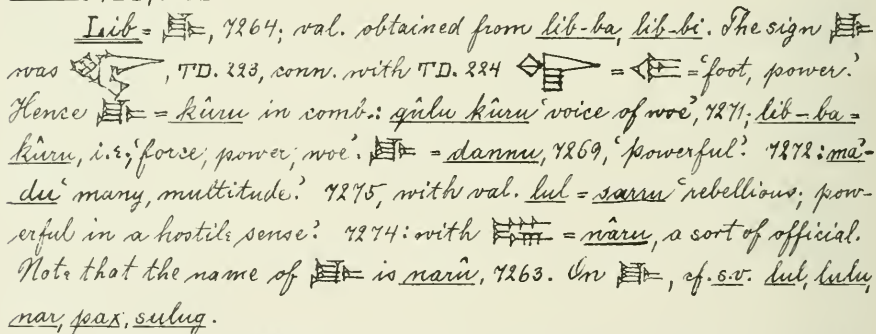 Lib = 𒈜, 7264; val. obtained from lib-ba, lib-bi. The sign 𒈜
was , TD. 223, conn. with TD. 224 = = ‘foot, power.’
Hence 𒈜 = kûru in comb.: qûlu kûru ‘voice of woe’, 7271; lib-ba =
kûru, i.e., ‘force; power; woe’. 𒈜 = dannu, 7269, ‘powerful.’ 7272: ma’-
du ‘many, multitude.’ 7275, with val. lul = sarru ‘rebellious; pow-
erful in a hostile sense.’ 7274: with = nâru, a sort of official.
Note that the name of 𒈜 is narû, 7263. On 𒈜, cf. s.v. lul, lulu,
nar, pax, sulug.